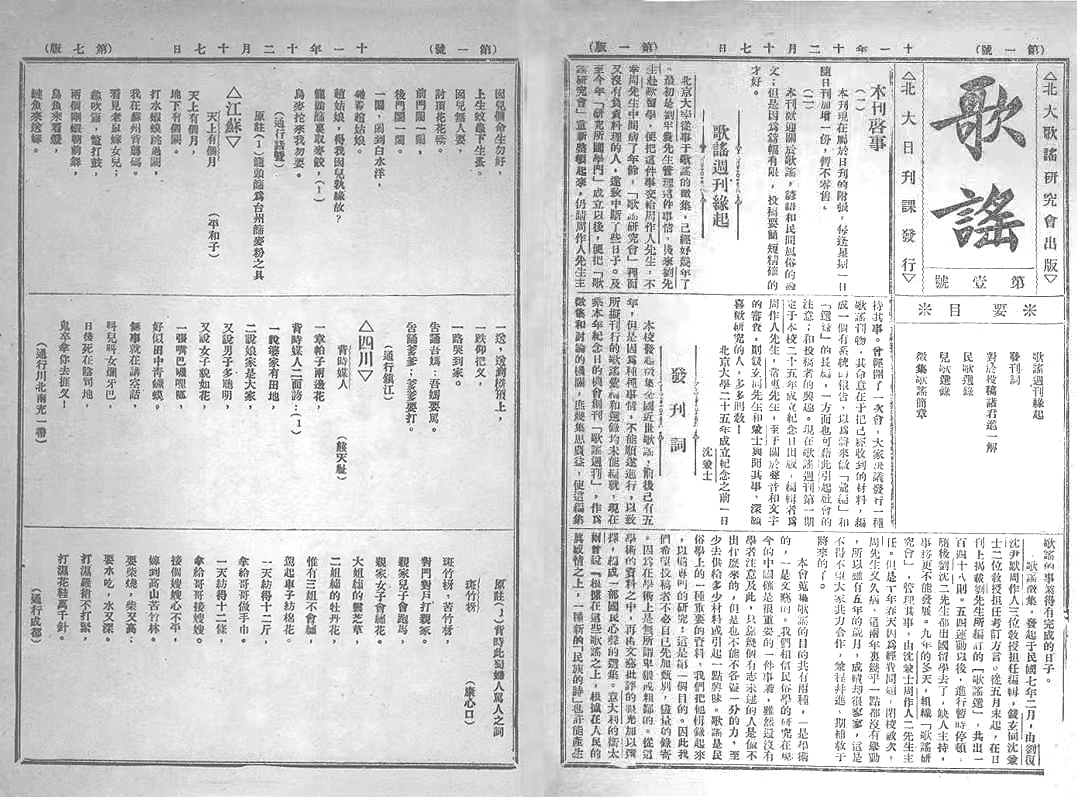 (第一號)　十一年十二月十七日　(第一版)
△北大歌謠研究會出版▽
歌謠
第壹號
△北大日刊課發行▽
※要目※
歌謠週刊緣起
發刊詞
對於投稿諸君進一解
民歌選錄
兒歌選錄
徵集歌謠簡章
本刊啓事
(一)
本刊現在屬於日刊的附張，每逢星期一日
隨日刊加增一份，暫不零售。
(二)
本刊歡迎關於歌謠，諺語和民間風俗的論
文；但是因爲篇幅有限，投稿要簡短精傢的
才好。
歌謠週刊緣起
北京大學從事于歌謠的徵集，已經好幾年了
。最初是劉半農先生管理這件事情，後來劉先
生赴歐留學，便把這件事交給周作人先生，不
幸周先生中間病了年餘，「歌謠研究會」裡面
又沒有負責料理的人，遂致中斷了些日子。及
至今年「研究所國學門」成立以後，便把「歌
謠研究會」重新整頓起來，仍請周作人先生主
持其事。曾經開了一次會，大家決議發行一種
歌謠刊物，其命意在于把已經收到的材料，編
成一個有系統的報告，以爲將來做「彙編」和
「選錄」的長編，一方面也可藉此引起社會的
注意；和投稿者的興趣。現在歌謠週刊第一期
定于本校二十五年成立紀念日出版，編輯者爲
周作人先生，常惠先生，至于關於聲音和文字
的審査，則錢玄同先生和兼士與聞其事，深願
喜歡研究的人，多多同敎！
北京大學二十五年成立紀念之前一日
沈兼士
發刊詞
本校發起徵集全國近世歌謠，前後已有五
年，但是因爲種種事情，不能順遂進行，以致
所擬刊行的歌謠彙編和選錄均未能編就，現在
乘本年紀念日的機會創刊「歌謠週刊」，作爲
徵集和討論的機關，庶幾集思廣益，使這編集
歌謠的事業得有完成的日子。
歌謠徵集，發起于民國七年二月，由劉復
沈尹默周作人三位敎授担任編輯，錢玄同沈兼
士二位敎授担任考訂方言。從五月末起，在日
刊上揭載劉先生所編訂的「歌謠選」，共出一
百四十八則。五四運動以後，進行暫時停頓，
隨後劉沈二先生都出國留學去了，缺人主持，
事務更不能發展。九年的冬天，組織「歌謠研
究會」，管理其事，由沈兼士周作人二先生主
任。但是十年春天因爲經費問題，閉校數次，
周先生又久病，這兩年裏幾乎一點都沒有舉動
，所以雖有五年的歲月，成績却很寥寥，這是
不得不望大家共力合作，兼程幷進，期補救于
將來的了。
本會蒐集歌謠的目的共有兩種，一是學術
的，一是文藝的。我們相信民俗學的研究在現
今的中國確是很重要的一件事業，雖然還沒有
學者注意及此，只靠幾個有志未逮的人是做不
出什麼來的，但是也不能不各盡一分的力，至
少去供給多少材料或引起一點興味。歌謠是民
俗學上的一種重要的資料，我們把他輯錄起來
，以備專門的研究：這是第一個目的。因此我
們希望投稿者不必自己先加甄別，儘量的錄寄
，因爲在學術上是無所謂卑猥或粗鄙的。從這
學術的資料之中，再由文藝批評的眼光加以選
擇，編成一部國民心聲的選集。意大利的衞太
爾曾說「根據在這些歌謠之上，根據在人民的
眞感情之上，一種新的「民族的詩」也許能產生
(第一號)　十一年十二月十七日　(第七版)
因兒個命生勿好，
上生蚊蟲下生蚤。
因兒無人要，
討頂花花轎。
前門鬧一鬧，
後門鬧一鬧，
一鬧，鬧到白水洋，
碰着趙姑娘。
趙姑娘，得我因兒執緣故？
龍頭篩裏取麥餃，（1）
烏麥拕來我勿要。
（通行諸暨）
原註（1）龍頭篩爲台州篩麥粉之具
△江蘇▽
天上有個月（平和子）
天上有個月，
地下有個闕。
打水蝦蟆跳過闕，
我在蘇州背蘆蓆。
看見老鼠嫁女兒；
龜吹簫，鼈打鼓，
兩個剛蝦前舞，
烏魚來看燈，
鰱魚來送嫁。
一送，送到橫頂上，
一跌仰把叉，
一路哭到家。
告訴吾媽：吾媽要罵。
告訴爹爹；爹爹要打。
（通行鎮江）
△四川▽
背時媒人（熊天趾）
一章帕子兩邊花，
背時媒人二面誇：（1）
一說婆家有田地，
二說娘家是大家，
又說男子多聰明，
又說女子貌如花，
一張嘴巴嘰哩呱，
好似田中青蟆蟆。
無事就在講空話，
叫兒叫女爛牙巴，
日後死在陰司地，
鬼卒拿你去捱叉！
（通行川北南充一帶）
原註（1）背時此蜀婦人罵人之詞
斑竹椏（康心口）
斑竹椏，苦竹椏，
對門對戶打親家。
親家兒子會跑馬，
親家女子會繡花。
大姐綉的靈芝草，
二姐綉的牡丹花，
惟有三姐不會繡，
駕起車子紡棉花。
一天紡得十二斤，
拿給哥哥做手巾。
一天紡得十二條，
拿給哥哥接嫂嫂。
接個嫂嫂心不平，
嫁到高山苦竹林。
要柴燒，柴又高；
要水吃，水又深。
打濕羅裙不打緊，
打濕花鞋萬千針。
（通行成都）